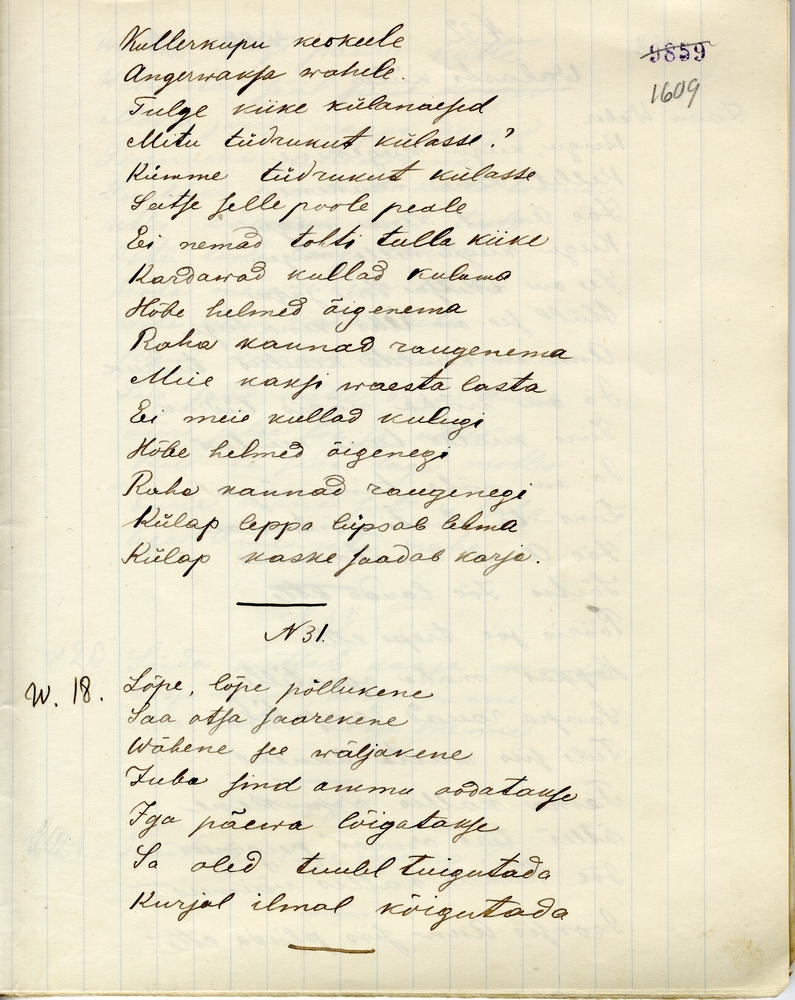 9859
1609
Kullerkupu keskele
Angerwaksa wahele.
Tulge kiike külanaesed
Mitu tüdrukut külasse?
Kümme tüdrukut külasse
Seitse selle poole peale
Ei nemad tohti tulla kiike
Kardawad kullad kuluma
Hõbe helmed õigenema
Raha kannad raugenema
Meie kaksi waesta lasta
Ei meie kullad kulugi
Hõbe helmed õigenegi
Raha kannad raugenegi
Külap leppa lüpsab lehma
Külap kaske saadab karja.
N 31.
W. 18.
Lõpe, lõpe põllukene
Saa otsa saarekene
Wähene see wäljakene
Juba sind ammu oodatakse
Iga päewa lõigatakse
Sa oled tuulel tuigutada
Kurjal ilmal kõigutada